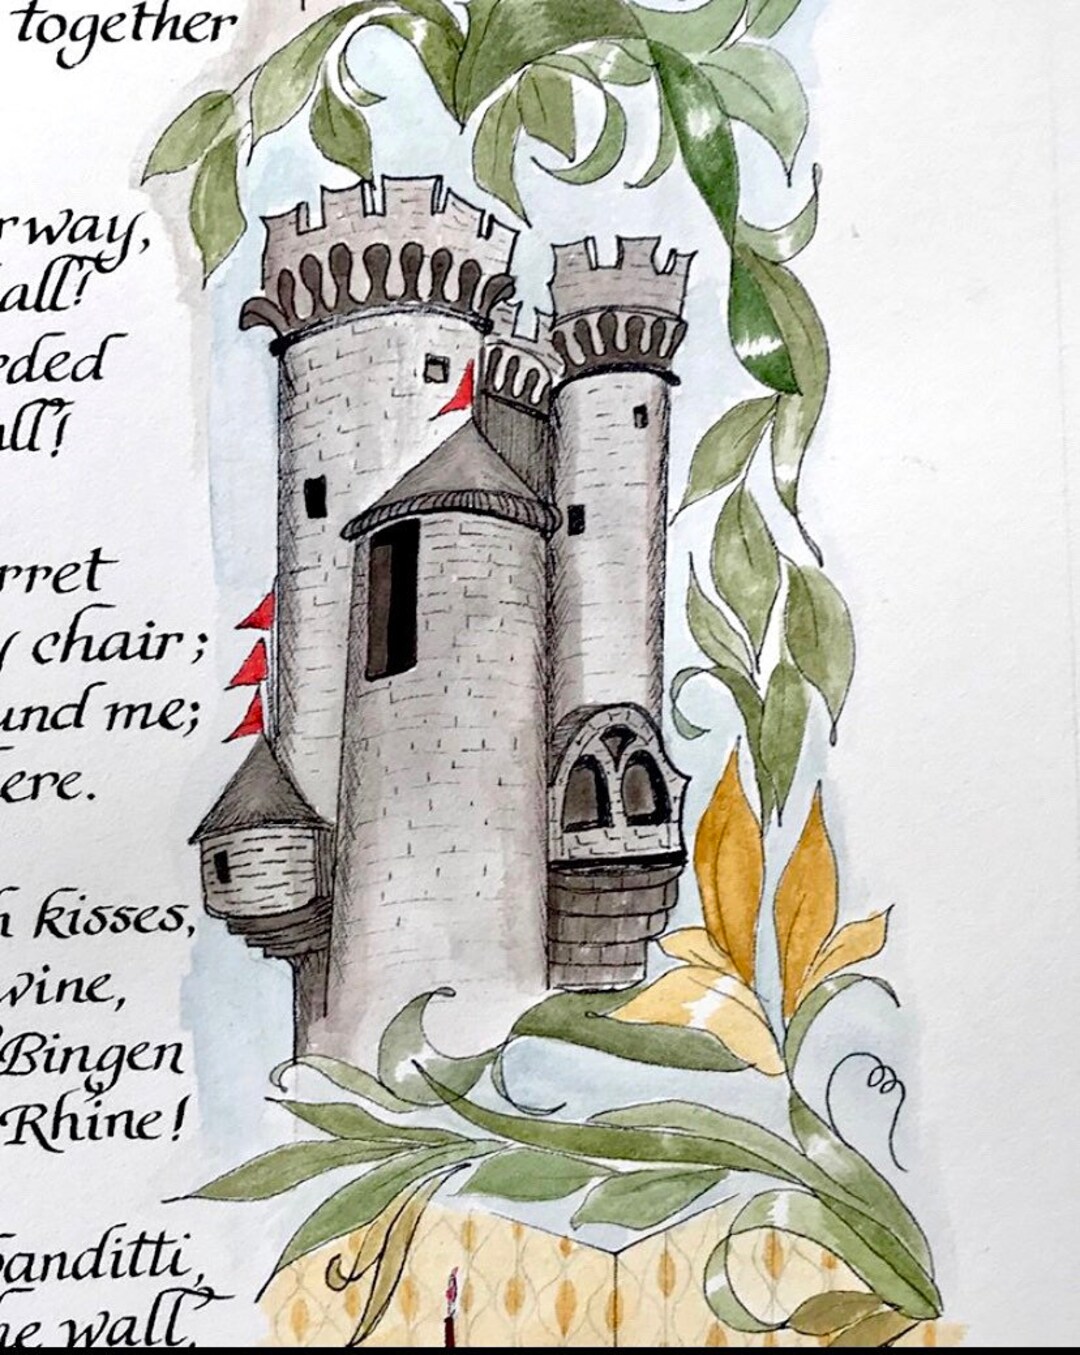 together
rway,
all!
eded
all!
rret
y chair;
und me;
ere.
h kisses,
wine,
Bingen
Rhine!
banditti,
he wall,